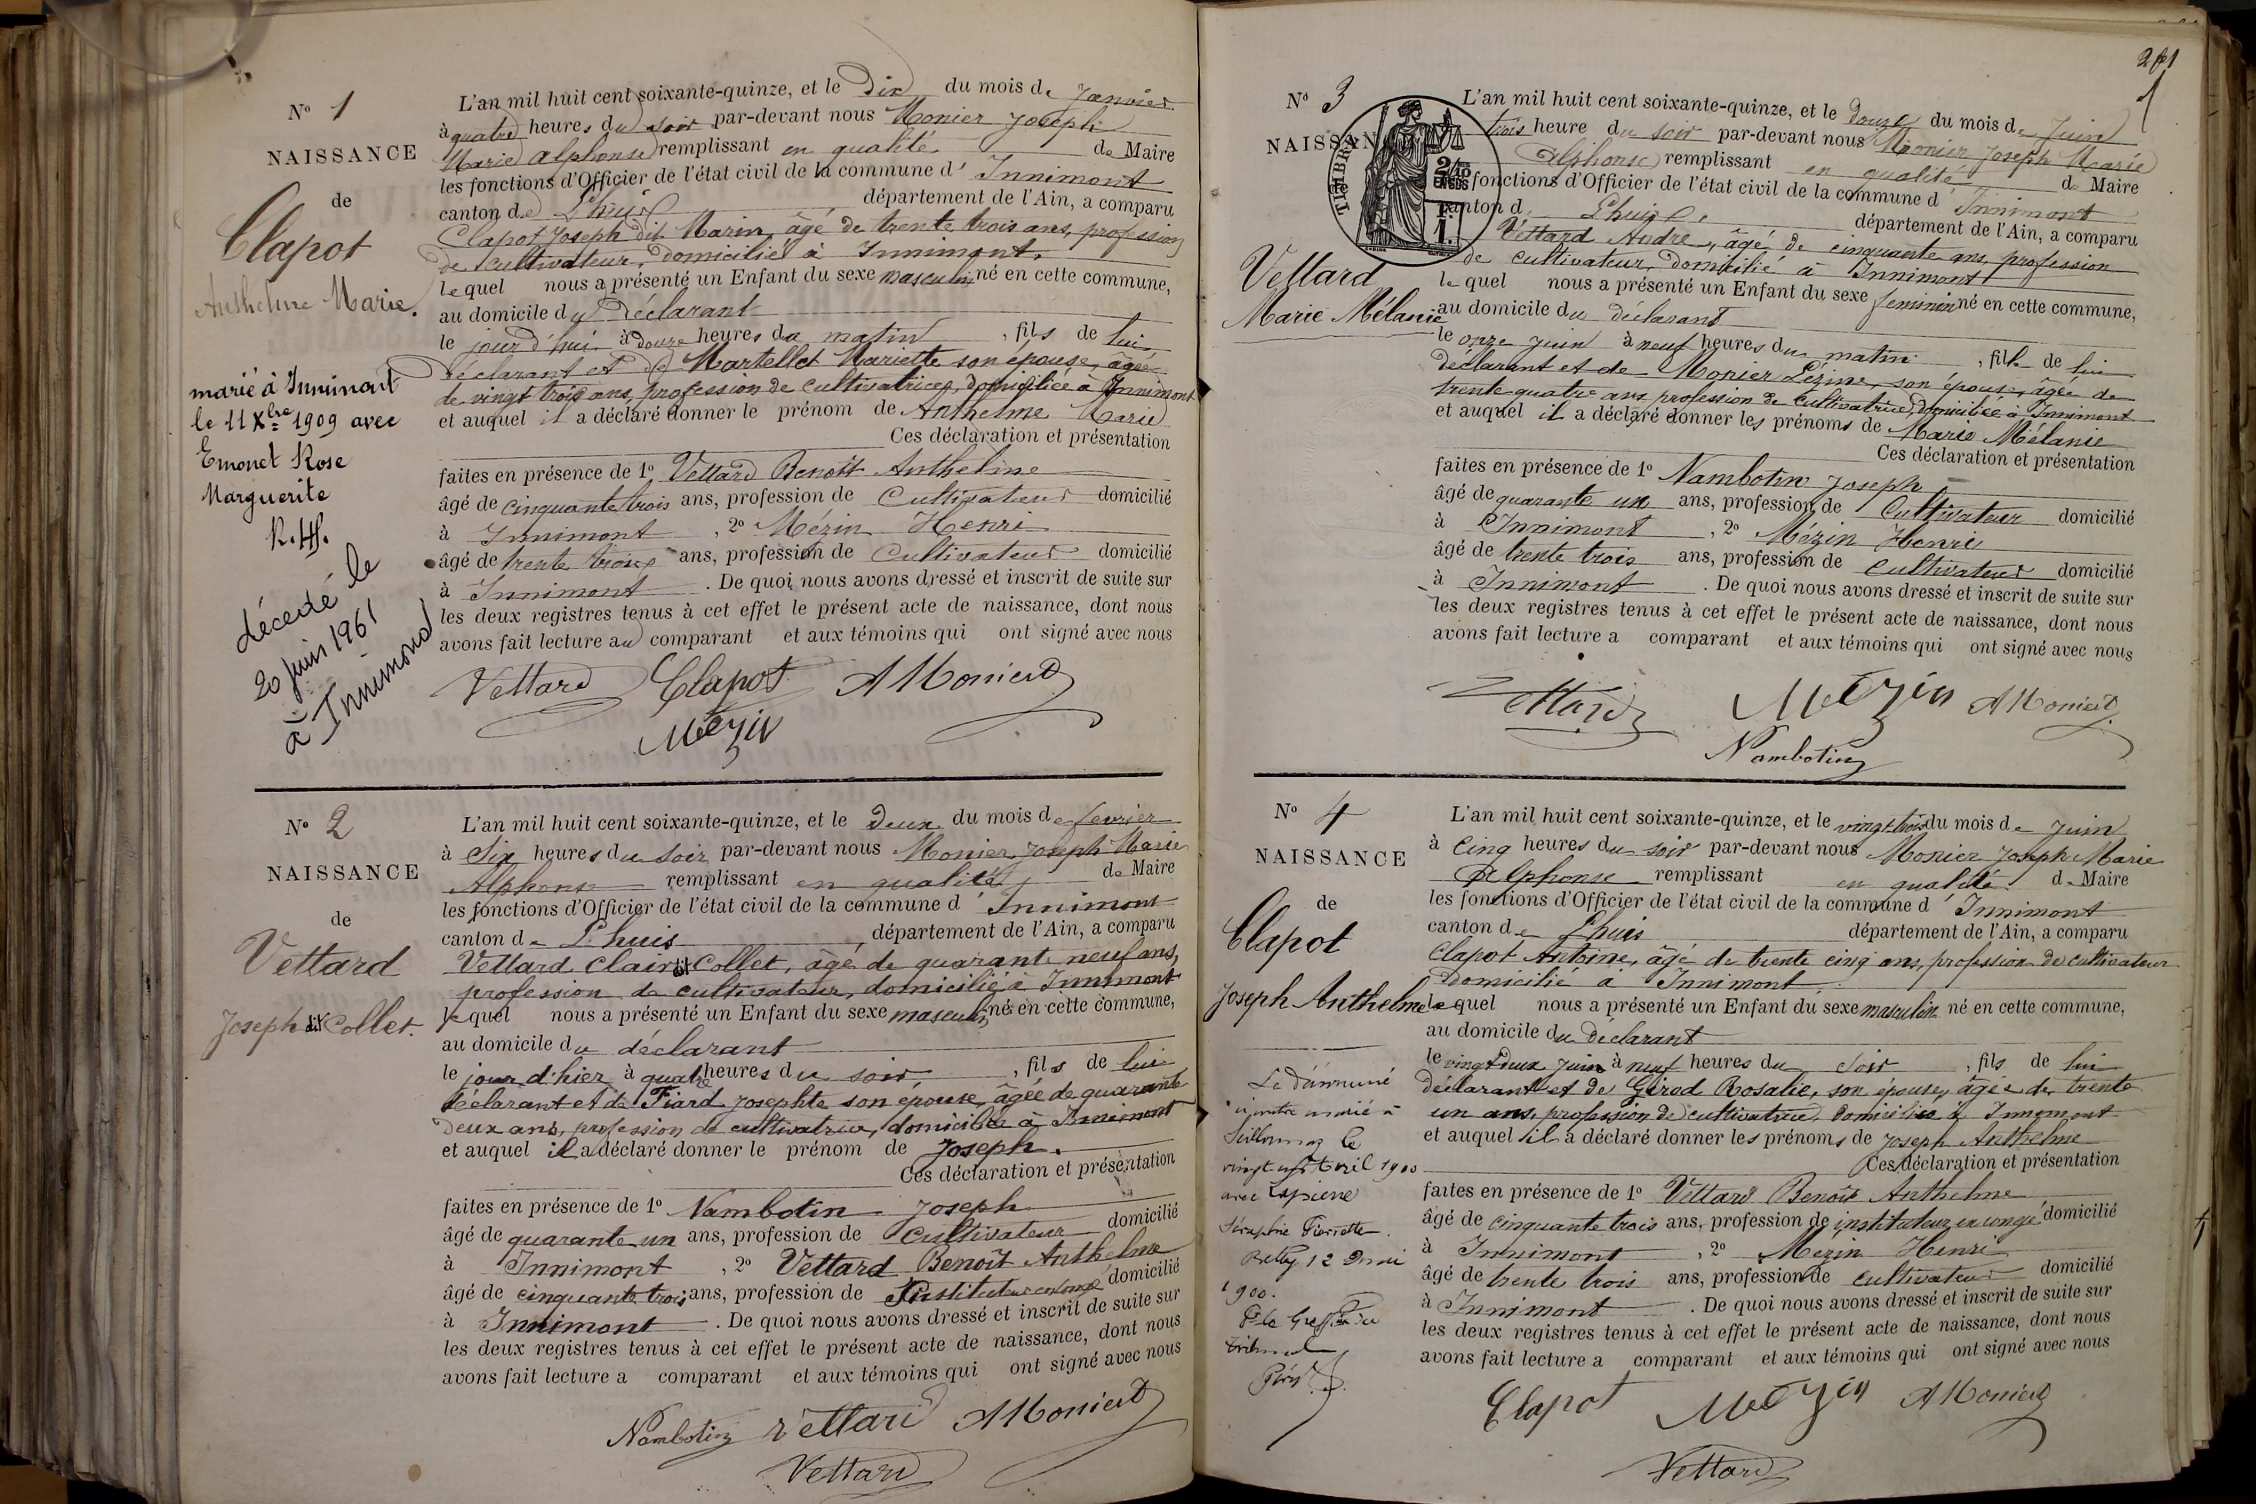 Nº 1
NAISSANCE
de
Clapot
Anthelme Marie.
marié à Innimont
le 11 Xbre 1909 avec
Emonet Rose
Marguerite
décédé le
20 juin 1961
à Innimond
L'an mil huit cent soixante-quinze, et le Dix du mois de Janvier
à quatre heures du soir par-devant nous Monier Joseph
Marie Alphonse remplissant en qualité de Maire
les fonctions d'Officier de l'état civil de la commune d' Innimont
canton de Lhuis département de l'Ain, a comparu
Clapot Joseph dit Marin, âgé de trente trois ans, profession
de cultivateur, domicilié à Innimont.
lequel nous a présenté un Enfant du sexe masculin né en cette commune,
au domicile du Déclarant
le jour d'hui à douze heures du matin, fils de lui
déclarant et de Martellet Mariette son épouse, âgée
de vingt trois ans, profession de cultivatrice, domiciliée à Innimont
et auquel il a déclaré donner le prénom de Anthelme Marie
Ces déclaration et présentation
faites en présence de 1º Vettard Benoît Anthelme
âgé de cinquante trois ans, profession de Cultivateur domicilié
à Innimont, 2º Mézin Henri
âgé de trente trois ans, profession de Cultivateur domicilié
à Innimont. De quoi nous avons dressé et inscrit de suite sur
les deux registres tenus à cet effet le présent acte de naissance, dont nous
avons fait lecture au comparant et aux témoins qui ont signé avec nous
Vettard Clapot AMonier
Mézin
Nº 2
NAISSANCE
de
Vettard
Joseph dit Collet.
L'an mil huit cent soixante-quinze, et le Deux du mois de fevrier
à Six heures du soir par-devant nous Monier Joseph Marie
Alphonse remplissant en qualité de Maire
les fonctions d'Officier de l'état civil de la commune d' Innimont
canton de Lhuis département de l'Ain, a comparu
Vettard Clair dit Collet, âgé de quarante neuf ans,
profession de cultivateur, domicilié à Innimont
lequel nous a présenté un Enfant du sexe masculin né en cette commune,
au domicile du déclarant
le jour d'hier à quatre heures du soir, fils de lui
déclarant et de Fiard Josephte son épouse, âgée de quarante
deux ans, profession de cultivatrice, domiciliée à Innimont
et auquel il a déclaré donner le prénom de Joseph.
Ces déclaration et présentation
faites en présence de 1º Nambotin Joseph
âgé de quarante un ans, profession de Cultivateur domicilié
à Innimont, 2º Vettard Benoît Anthelme
âgé de cinquante trois ans, profession de Instituteur en congé domicilié
à Innimont. De quoi nous avons dressé et inscrit de suite sur
les deux registres tenus à cet effet le présent acte de naissance, dont nous
avons fait lecture a comparant et aux témoins qui ont signé avec nous
Nambotin Vettard AMonier
Vettard
Nº 3
NAISSAN
TIMBRE
2/10
EN SUS
Vettard
Marie Mélanie
L'an mil huit cent soixante-quinze, et le Douze du mois de Juin
trois heure du soir par-devant nous Monier Joseph Marie
Alphonse remplissant en qualité de Maire
fonctions d'Officier de l'état civil de la commune d' Innimont
canton d Lhuis département de l'Ain, a comparu
Vettard André, âgé de cinquante ans, profession
de cultivateur, domicilié à Innimont
lequel nous a présenté un Enfant du sexe feminin né en cette commune,
au domicile du déclarant
le onze juin à neuf heures du matin, fille de lui
déclarant et de Monier Lézine, son épouse, âgée de
trente quatre ans profession de cultivatrice, domiciliée à Innimont
et auquel il a déclaré donner les prénoms de Marie Mélanie
Ces déclaration et présentation
faites en présence de 1º Nambotin Joseph
âgé de quarante un ans, profession de Cultivateur domicilié
à Innimont, 2º Mézin Henri
âgé de trente trois ans, profession de cultivateur domicilié
à Innimont. De quoi nous avons dressé et inscrit de suite sur
les deux registres tenus à cet effet le présent acte de naissance, dont nous
avons fait lecture a comparant et aux témoins qui ont signé avec nous
Vettard Mézin AMonier
Nambotin
Nº 4
NAISSANCE
de
Clapot
Joseph Anthelme
Le Dénommé
ci-contre marié à
le
vingt avril 1900
avec Lapierre
Séraphie Pierrette.
Belley 12 mai
1900.
P. le Greffier du
tribunal
L'an mil huit cent soixante-quinze, et le vingt trois du mois de Juin
à Cinq heures du soir par-devant nous Monier Joseph Marie
Alphonse remplissant en qualité de Maire
les fonctions d'Officier de l'état civil de la commune d' Innimont
canton de Lhuis département de l'Ain, a comparu
Clapot Antoine, âgé de trente cinq ans, profession de cultivateur
domicilié à Innimont
lequel nous a présenté un Enfant du sexe masculin né en cette commune,
au domicile du déclarant
le vingt deux juin à neuf heures du soir, fils de lui
déclarant et de Girod Rosalie, son épouse, âgée de trente
un ans, profession de cultivatrice, domiciliée à Innimont
et auquel il a déclaré donner les prénoms de Joseph Anthelme
Ces déclaration et présentation
faites en présence de 1º Vettard Benoît Anthelme
âgé de cinquante trois ans, profession de instituteur en congé domicilié
à Innimont, 2º Mézin Henri
âgé de trente trois ans, profession de cultivateur domicilié
à Innimont. De quoi nous avons dressé et inscrit de suite sur
les deux registres tenus à cet effet le présent acte de naissance, dont nous
avons fait lecture a comparant et aux témoins qui ont signé avec nous
Clapot Mézin AMonier
Vettard